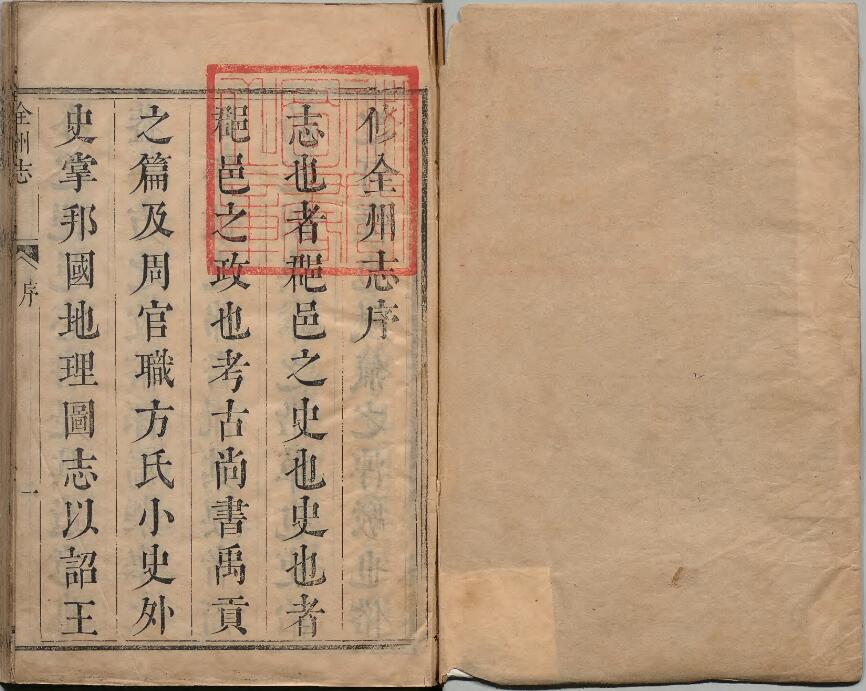 修全州志序
志也者郡邑之史也史也者
郡邑之政也考古尚書禹貢
之篇及周官職方氏小史外
史掌邦國地理圖志以詔王
全州志
序
一